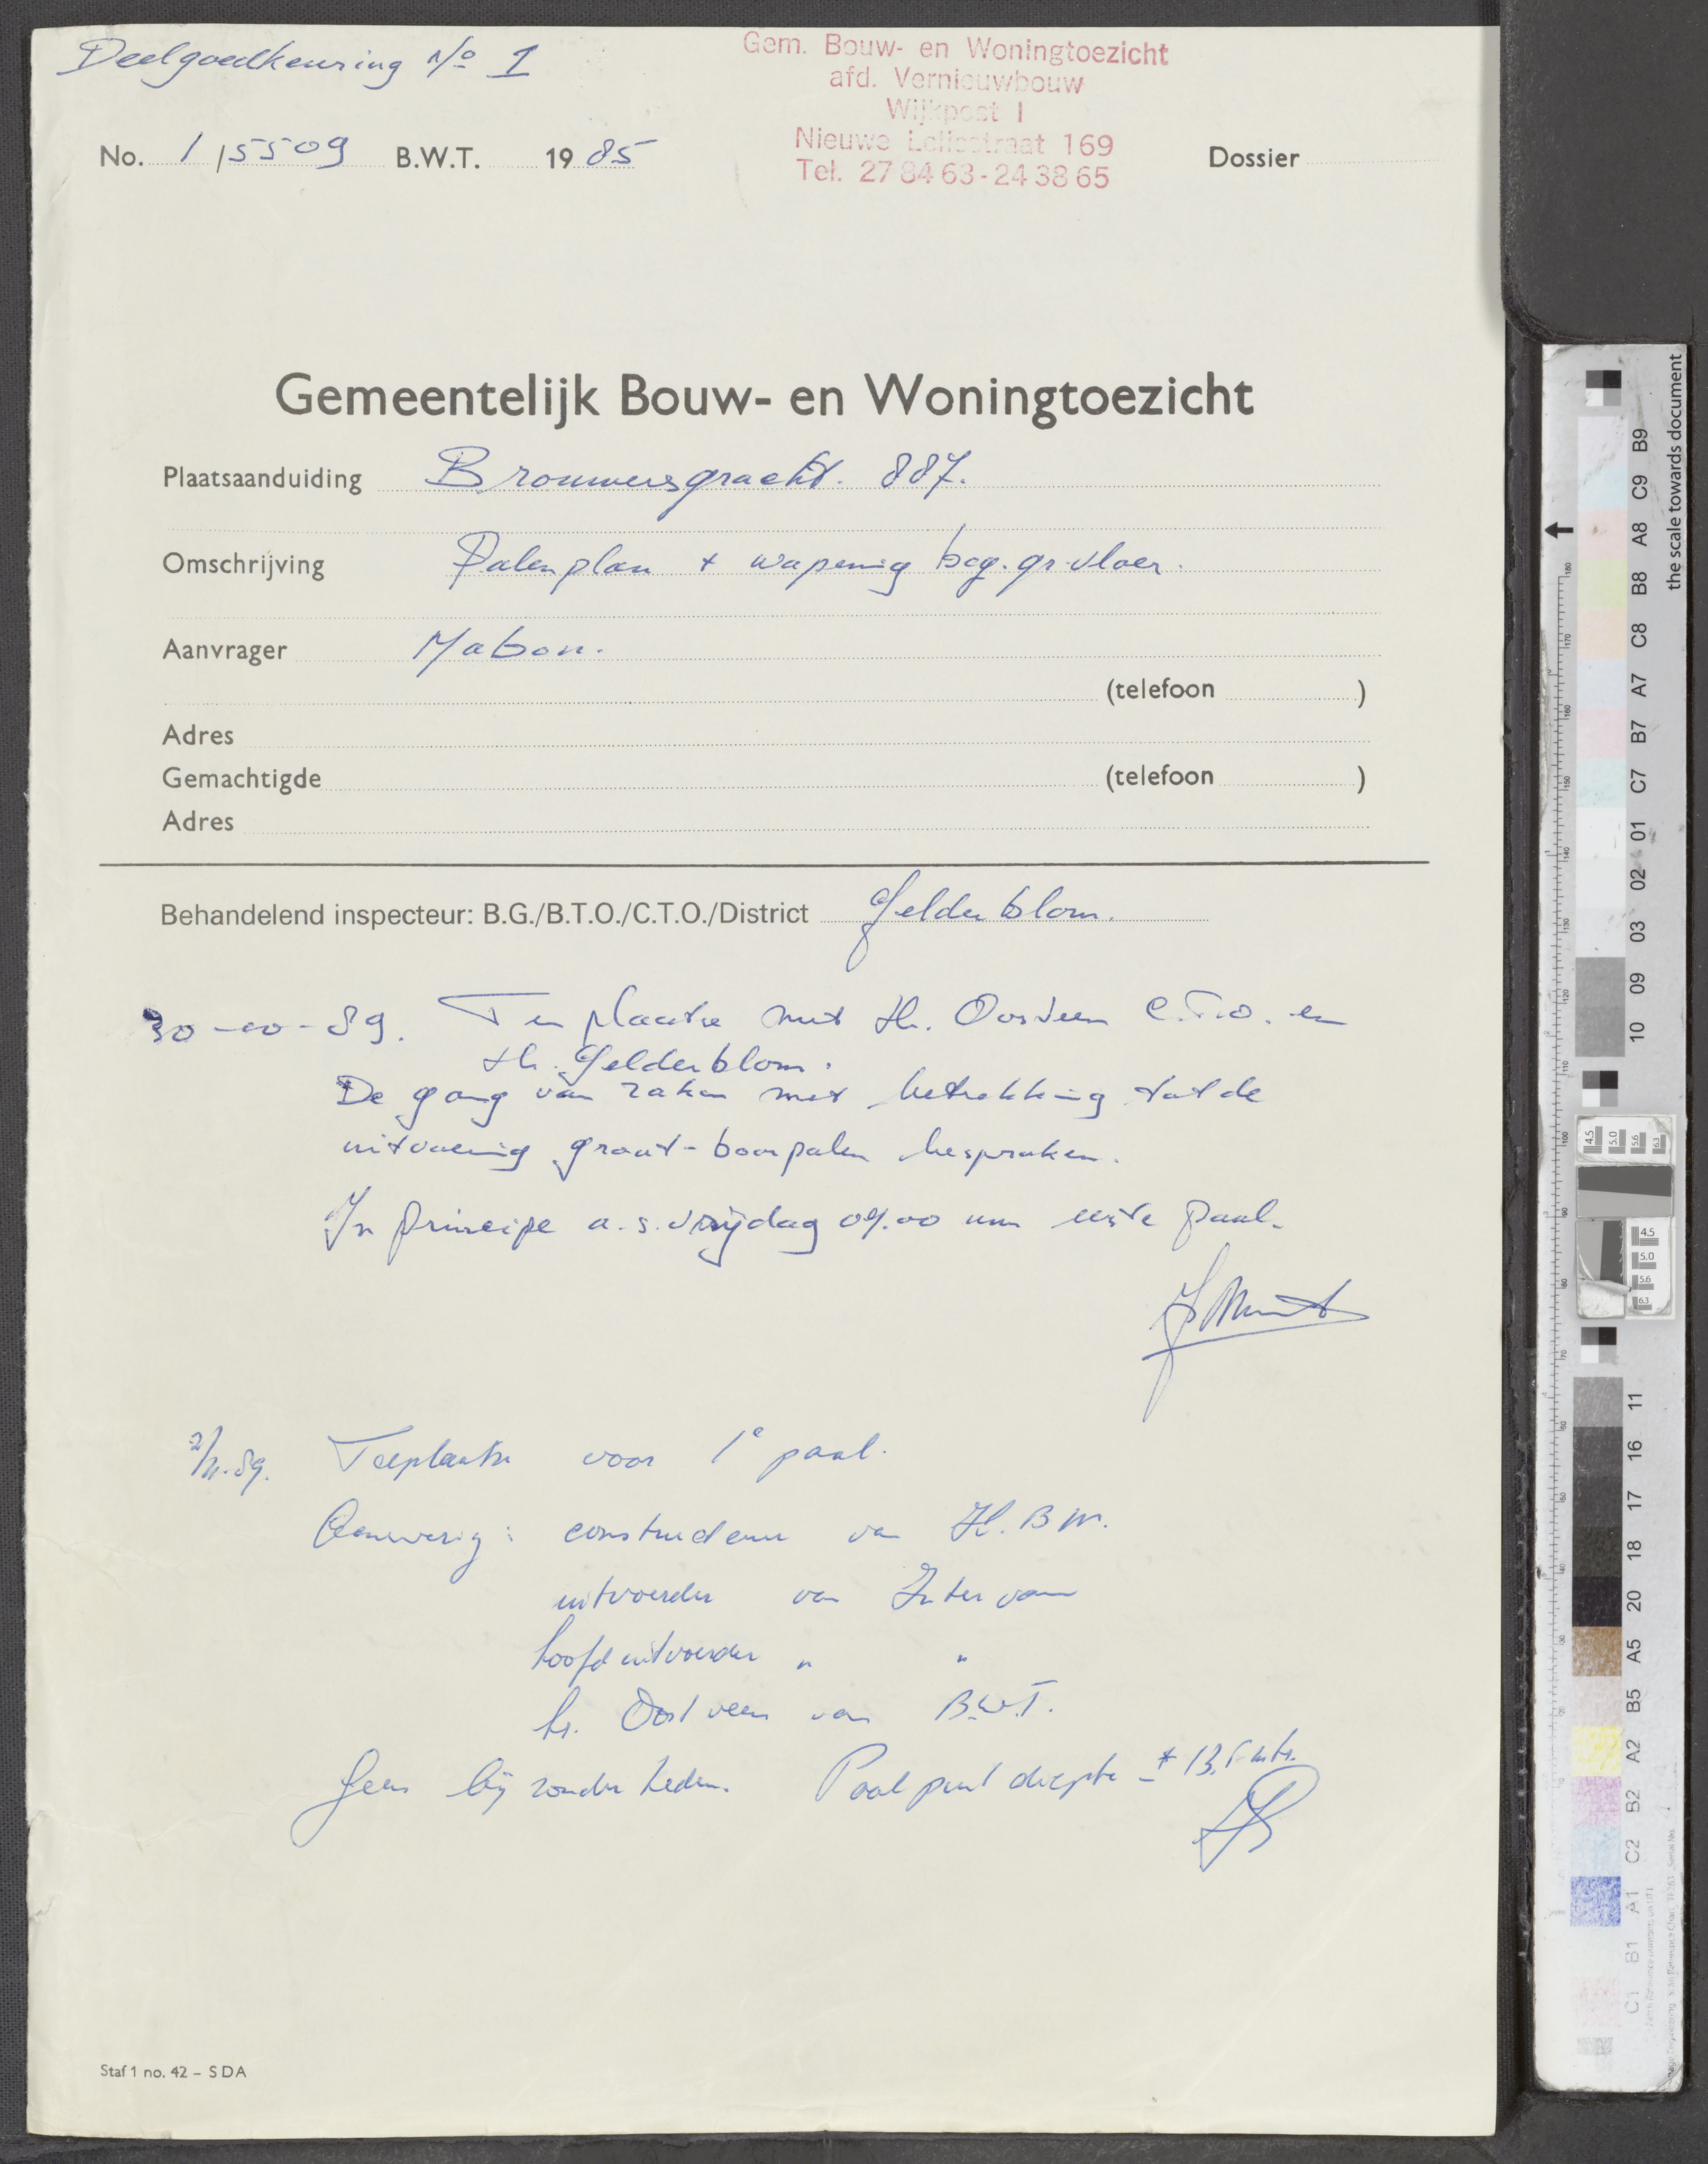 Deelgoedkeuring No 1
Gem. Bouw- en Woningtoezicht
afd. Vernieuwbouw
Wijkpost I
Nieuwe Leliestraat 169
Tel. 27 84 63 - 24 38 65
No. 1/5509 B.W.T. 1985 Dossier
Gemeentelijk Bouw- en Woningtoezicht
Plaatsaanduiding Brouwersgracht. 887.
Omschrijving Palenplan + wapening beg. gr. vloer.
Aanvrager Mabon.
(telefoon )
Adres
Gemachtigde (telefoon )
Adres
Behandelend inspecteur: B.G./B.T.O./C.T.O./District Gelderblom.
30-10-89. Ten plaatse met Hr. Oostveen C.T.O. en
Hr. Gelderblom.
De gang van zaken met betrekking tot de
uitvoering grout-boorpalen besproken.
In principe a.s. vrijdag 09.00 uur eerste paal.
2/11-89. Ter plaatse voor 1e paal.
Aanwezig: constructeur van H.B.M.
uitvoerder van Intervam
hoofduitvoerder " "
hr. Oostveen van B.W.T.
Geen bijzonderheden. Paalpunt diepte ± 13,5 mtr.
Staf 1 no. 42 – SDA
the scale towards document
B9 C9 A8 B8 C8 A7 B7 C7 01 02 03 09 10
11 16 17 18 20 A5 B5 A2 B2 C2 A1 B1 C1